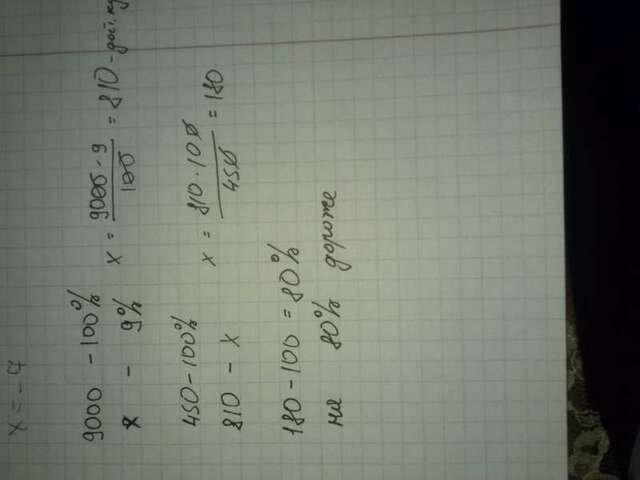 x = - 7
9000 - 100%
x - 9%
x = 9000 · 9 / 100 = 810 -
450 - 100%
810 - x
x = 810 · 100 / 450 = 180
180 - 100 = 80%
на 80% дороже